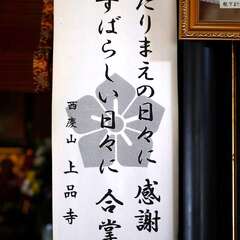 たりまえの日々に 感謝
すばらしい日々に 合掌
西慶山 上品寺